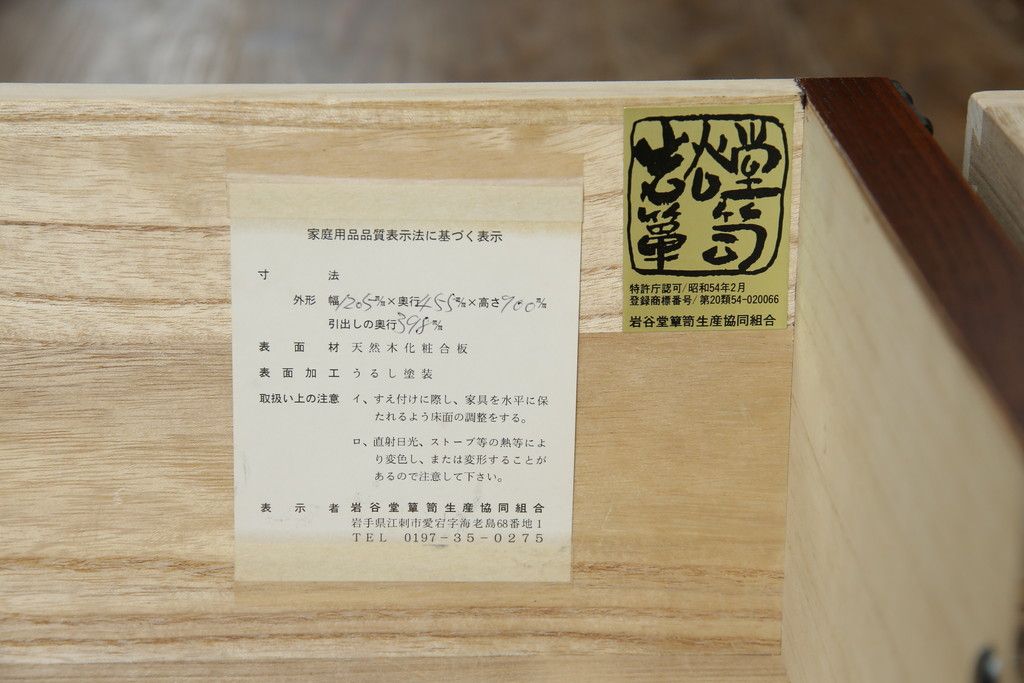 家庭用品品質表示法に基づく表示
寸法
外形 幅1205㍉×奥行455㍉×高さ900㍉
引出しの奥行398㍉
表面材 天然木化粧合板
表面加工 うるし塗装
取扱い上の注意 イ、すえ付けに際し、家具を水平に保
たれるよう床面の調整をする。
ロ、直射日光、ストーブ等の熱等によ
り変色し、または変形することが
あるので注意して下さい。
表示者 岩谷堂簞笥生産協同組合
岩手県江刺市愛宕字海老島68番地1
TEL 0197-35-0275
岩谷堂
簞笥
特許庁認可/昭和54年2月
登録商標番号/第20類54-020066
岩谷堂簞笥生産協同組合